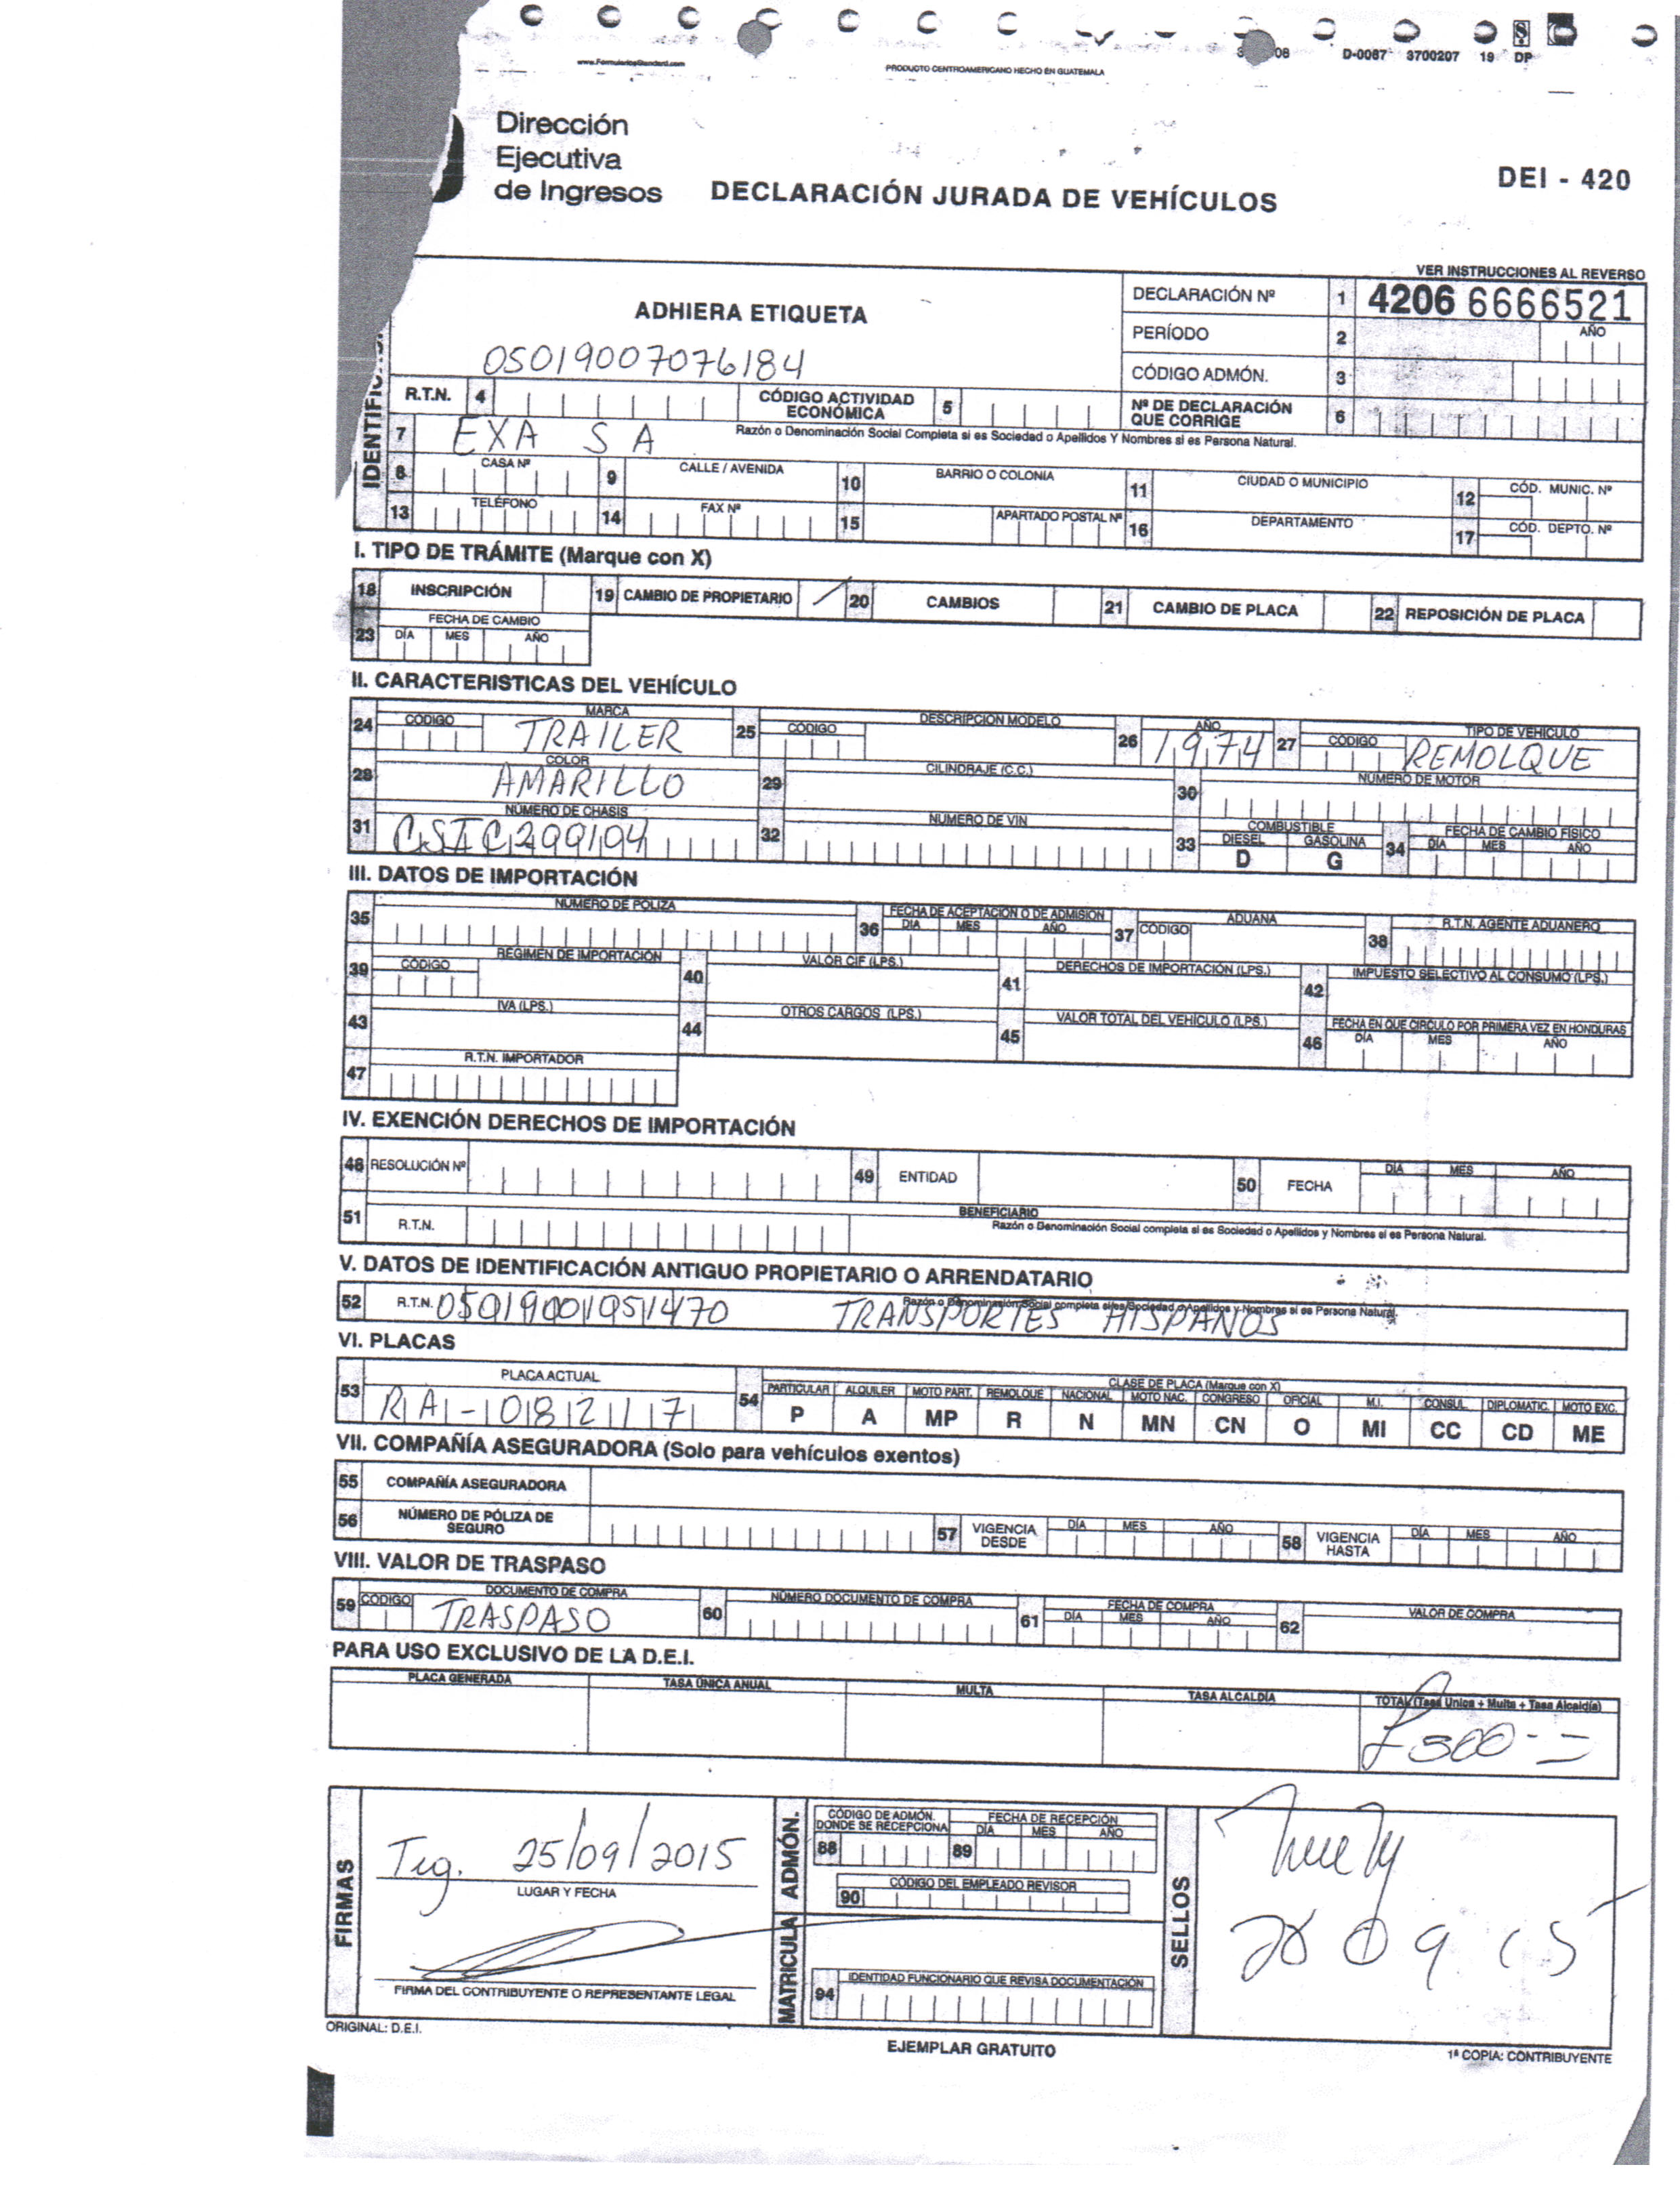 www.FormulariosStandard.com
PRODUCTO CENTROAMERICANO HECHO EN GUATEMALA
D-0087 3700207 19 DP
Dirección
Ejecutiva
de Ingresos
DECLARACIÓN JURADA DE VEHÍCULOS
DEI - 420
VER INSTRUCCIONES AL REVERSO
ADHIERA ETIQUETA
DECLARACIÓN Nº 1 4206 6666521
PERÍODO 2 AÑO
05019007076184
CÓDIGO ADMÓN. 3
R.T.N. 4 CÓDIGO ACTIVIDAD ECONÓMICA 5 Nº DE DECLARACIÓN QUE CORRIGE 6
7 EXA S A Razón o Denominación Social Completa si es Sociedad o Apellidos Y Nombres si es Persona Natural.
8 CASA Nº 9 CALLE / AVENIDA 10 BARRIO O COLONIA 11 CIUDAD O MUNICIPIO 12 CÓD. MUNIC. Nº
13 TELÉFONO 14 FAX Nº 15 APARTADO POSTAL Nº 16 DEPARTAMENTO 17 CÓD. DEPTO. Nº
I. TIPO DE TRÁMITE (Marque con X)
18 INSCRIPCIÓN 19 CAMBIO DE PROPIETARIO / 20 CAMBIOS 21 CAMBIO DE PLACA 22 REPOSICIÓN DE PLACA
23 FECHA DE CAMBIO DÍA MES AÑO
II. CARACTERISTICAS DEL VEHÍCULO
24 CÓDIGO MARCA TRAILER 25 CÓDIGO DESCRIPCIÓN MODELO 26 AÑO 1974 27 CÓDIGO TIPO DE VEHÍCULO REMOLQUE
28 COLOR AMARILLO 29 CILINDRAJE (C.C.) 30 NÚMERO DE MOTOR
31 NÚMERO DE CHASIS CSIC299104 32 NÚMERO DE VIN 33 COMBUSTIBLE DIESEL D GASOLINA G 34 FECHA DE CAMBIO FÍSICO DÍA MES AÑO
III. DATOS DE IMPORTACIÓN
35 NÚMERO DE PÓLIZA 36 FECHA DE ACEPTACIÓN O DE ADMISIÓN DÍA MES AÑO 37 CÓDIGO ADUANA 38 R.T.N. AGENTE ADUANERO
39 CÓDIGO RÉGIMEN DE IMPORTACIÓN 40 VALOR CIF (LPS.) 41 DERECHOS DE IMPORTACIÓN (LPS.) 42 IMPUESTO SELECTIVO AL CONSUMO (LPS.)
43 IVA (LPS.) 44 OTROS CARGOS (LPS.) 45 VALOR TOTAL DEL VEHÍCULO (LPS.) 46 FECHA EN QUE CIRCULO POR PRIMERA VEZ EN HONDURAS DÍA MES AÑO
47 R.T.N. IMPORTADOR
IV. EXENCIÓN DERECHOS DE IMPORTACIÓN
48 RESOLUCIÓN Nº 49 ENTIDAD 50 FECHA DÍA MES AÑO
51 R.T.N. BENEFICIARIO Razón o Denominación Social completa si es Sociedad o Apellidos y Nombres si es Persona Natural.
V. DATOS DE IDENTIFICACIÓN ANTIGUO PROPIETARIO O ARRENDATARIO
52 R.T.N. 05019001951470 Razón o Denominación Social completa si es Sociedad o Apellidos y Nombres si es Persona Natural. TRANSPORTES HISPANOS
VI. PLACAS
53 PLACA ACTUAL RA-08217 54 CLASE DE PLACA (Marque con X)
PARTICULAR ALQUILER MOTO PART. REMOLQUE NACIONAL MOTO NAC. CONGRESO OFICIAL M.I. CONSUL DIPLOMATIC. MOTO EXC.
P A MP R N MN CN O MI CC CD ME
VII. COMPAÑÍA ASEGURADORA (Solo para vehículos exentos)
55 COMPAÑÍA ASEGURADORA
56 NÚMERO DE PÓLIZA DE SEGURO 57 VIGENCIA DESDE DÍA MES AÑO 58 VIGENCIA HASTA DÍA MES AÑO
VIII. VALOR DE TRASPASO
59 CÓDIGO DOCUMENTO DE COMPRA TRASPASO 60 NÚMERO DOCUMENTO DE COMPRA 61 FECHA DE COMPRA DÍA MES AÑO 62 VALOR DE COMPRA
PARA USO EXCLUSIVO DE LA D.E.I.
PLACA GENERADA TASA ÚNICA ANUAL MULTA TASA ALCALDÍA TOTAL (Tasa Unica + Multa + Tasa Alcaldía)
FIRMAS
Teg. 25/09/2015
LUGAR Y FECHA
FIRMA DEL CONTRIBUYENTE O REPRESENTANTE LEGAL
MATRICULA ADMÓN.
88 CÓDIGO DE ADMÓN. DONDE SE RECEPCIONA 89 FECHA DE RECEPCIÓN DÍA MES AÑO
90 CÓDIGO DEL EMPLEADO REVISOR
94 IDENTIDAD FUNCIONARIO QUE REVISA DOCUMENTACIÓN
SELLOS
ORIGINAL: D.E.I.
EJEMPLAR GRATUITO
1ª COPIA: CONTRIBUYENTE